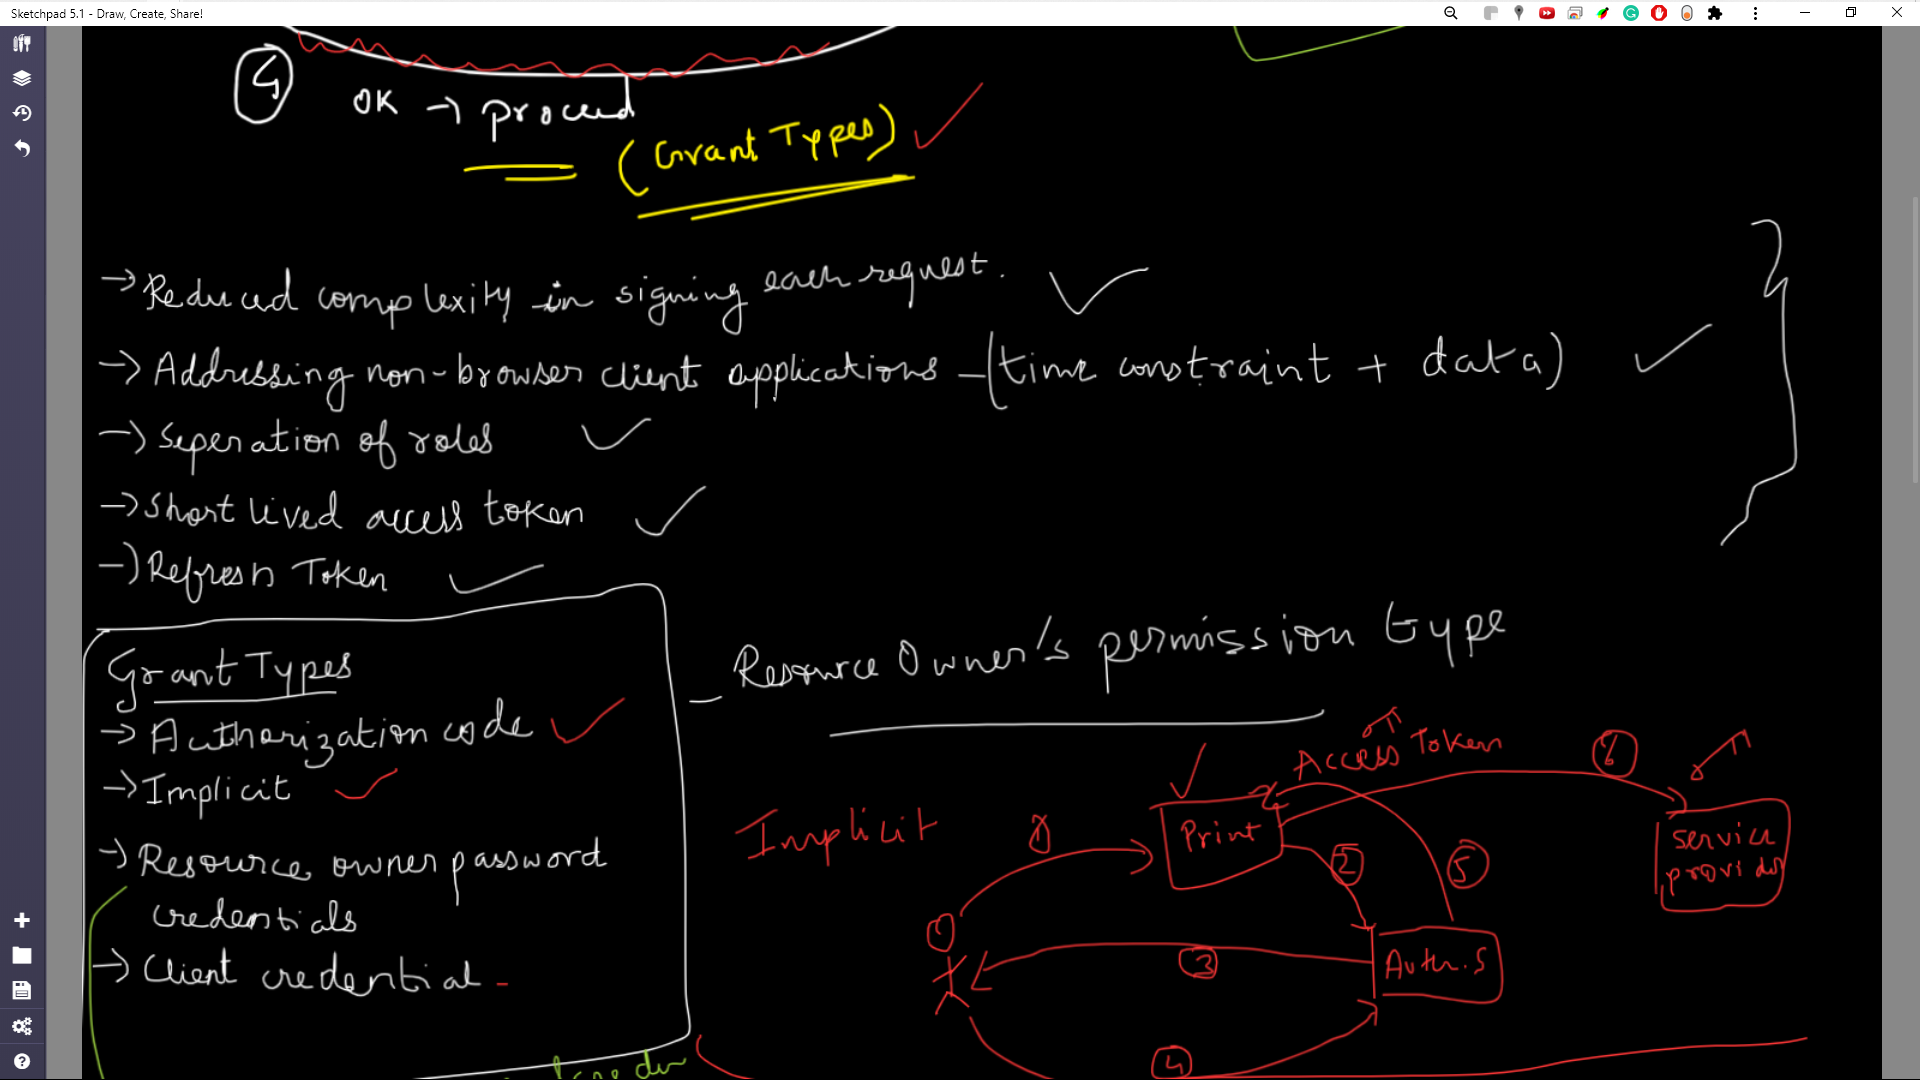 Sketchpad 5.1 - Draw, Create, Share!
OK → proceed
(Grant Types)
→ Reduced complexity in signing each request.
→ Addressing non-browser client applications - (time constraint + data)
→ Seperation of roles
→ Short lived access token
→ Refresh Token
Grant Types
→ Authorization code
→ Implicit
→ Resource owner password
credentials
→ Client credential -
- Resource Owner's permission type
Access Token
6
Implicit
1
Print
2
5
service
provider
3
Auth.S
4